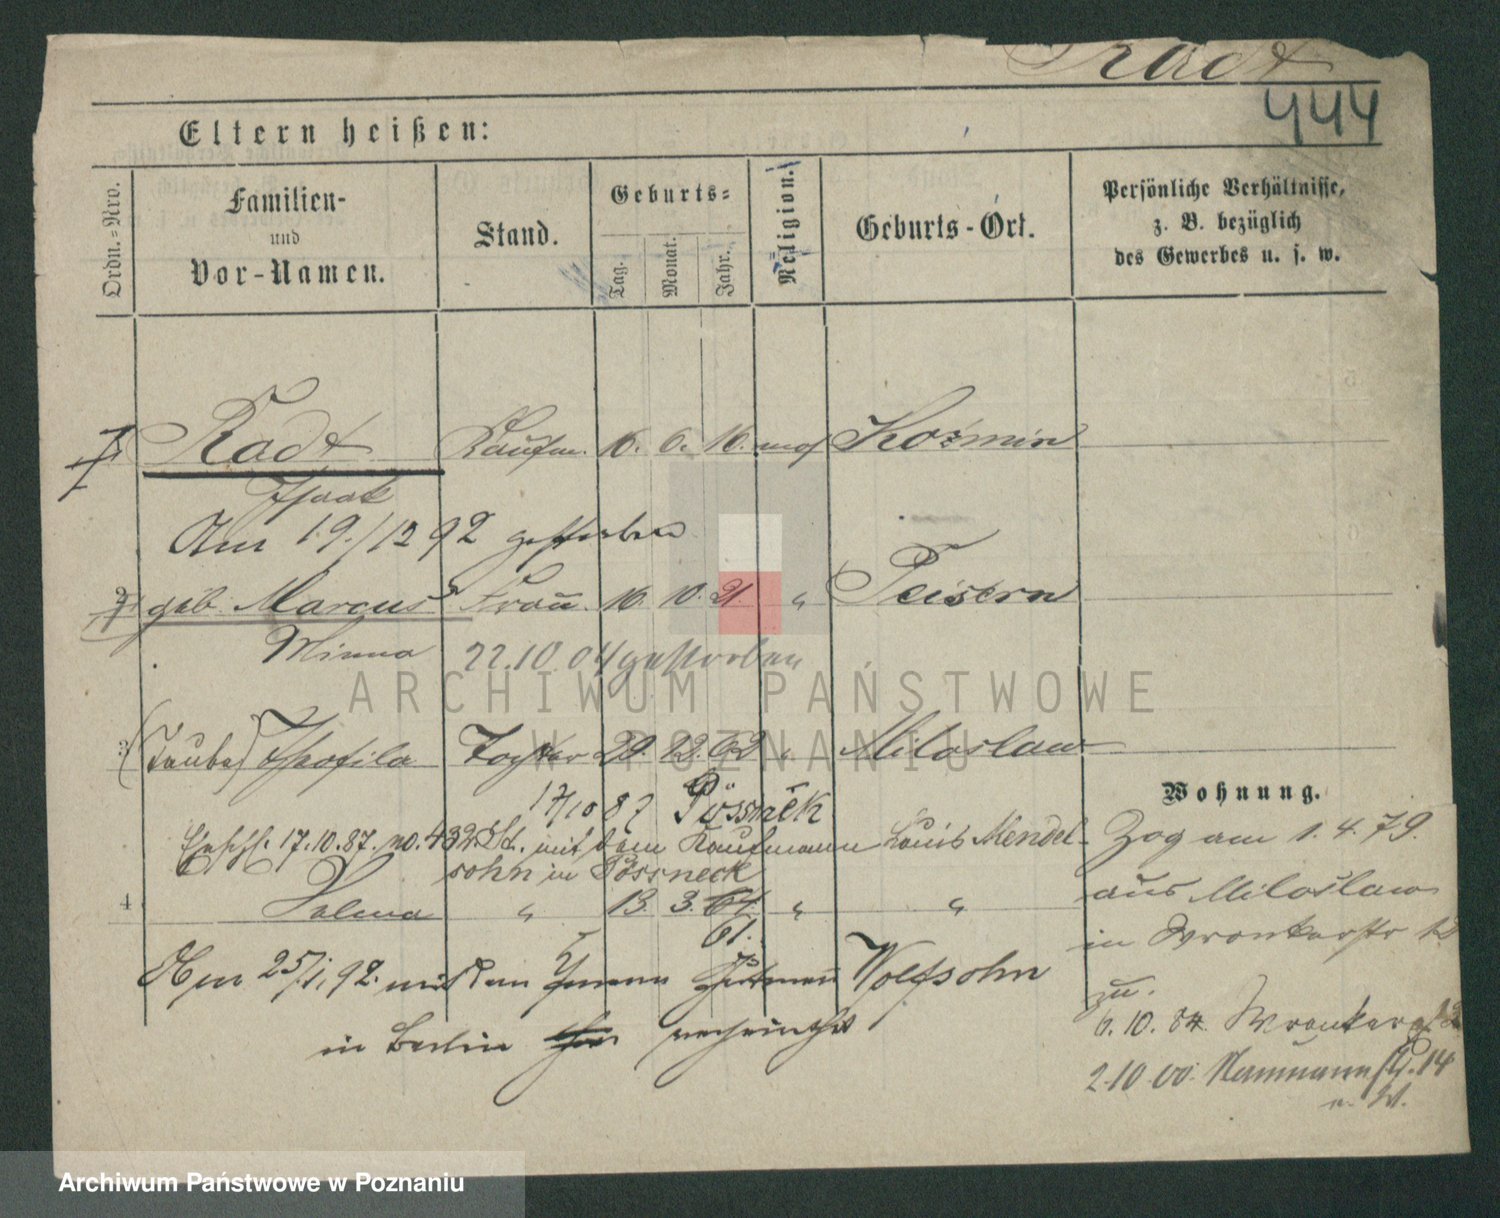 Radt
444
Eltern heißen:
Ordn.=Nro.
Familien-
und
Vor-Namen.
Stand.
Geburts=
Tag.
Monat.
Jahr.
Religion.
Geburts-Ort.
Persönliche Verhältnisse,
z. B. bezüglich
des Gewerbes u. s. w.
1. Radt Kaufm. 16. 6. 16. mos Koźmin
Isaak
Am 19./12 92 gestorben
2. geb. Marcus Frau 16. 10. 21 " Peisern
Minna 22.10.04 gestorben
3 (Taube) Theofila Tochter 29. 12. 62 " Miloslaw
17/10 87 Pössneck
17.10.87. no. 432 St. mit dem Kaufmann Louis Mendel-
sohn in Pössneck
4 Salma " 13. 3. 64. " "
61.
Am 25/1. 92. mit dem Wolfsohn
in Berlin
Wohnung.
Zog am 1. 4. 79.
aus Miloslaw
in Wronkerstr 12
zu.
6. 10. 84. Wronkerstr
2.10.00. Naumannstr. 14
ARCHIWUM PAŃSTWOWE
W POZNANIU
Archiwum Państwowe w Poznaniu